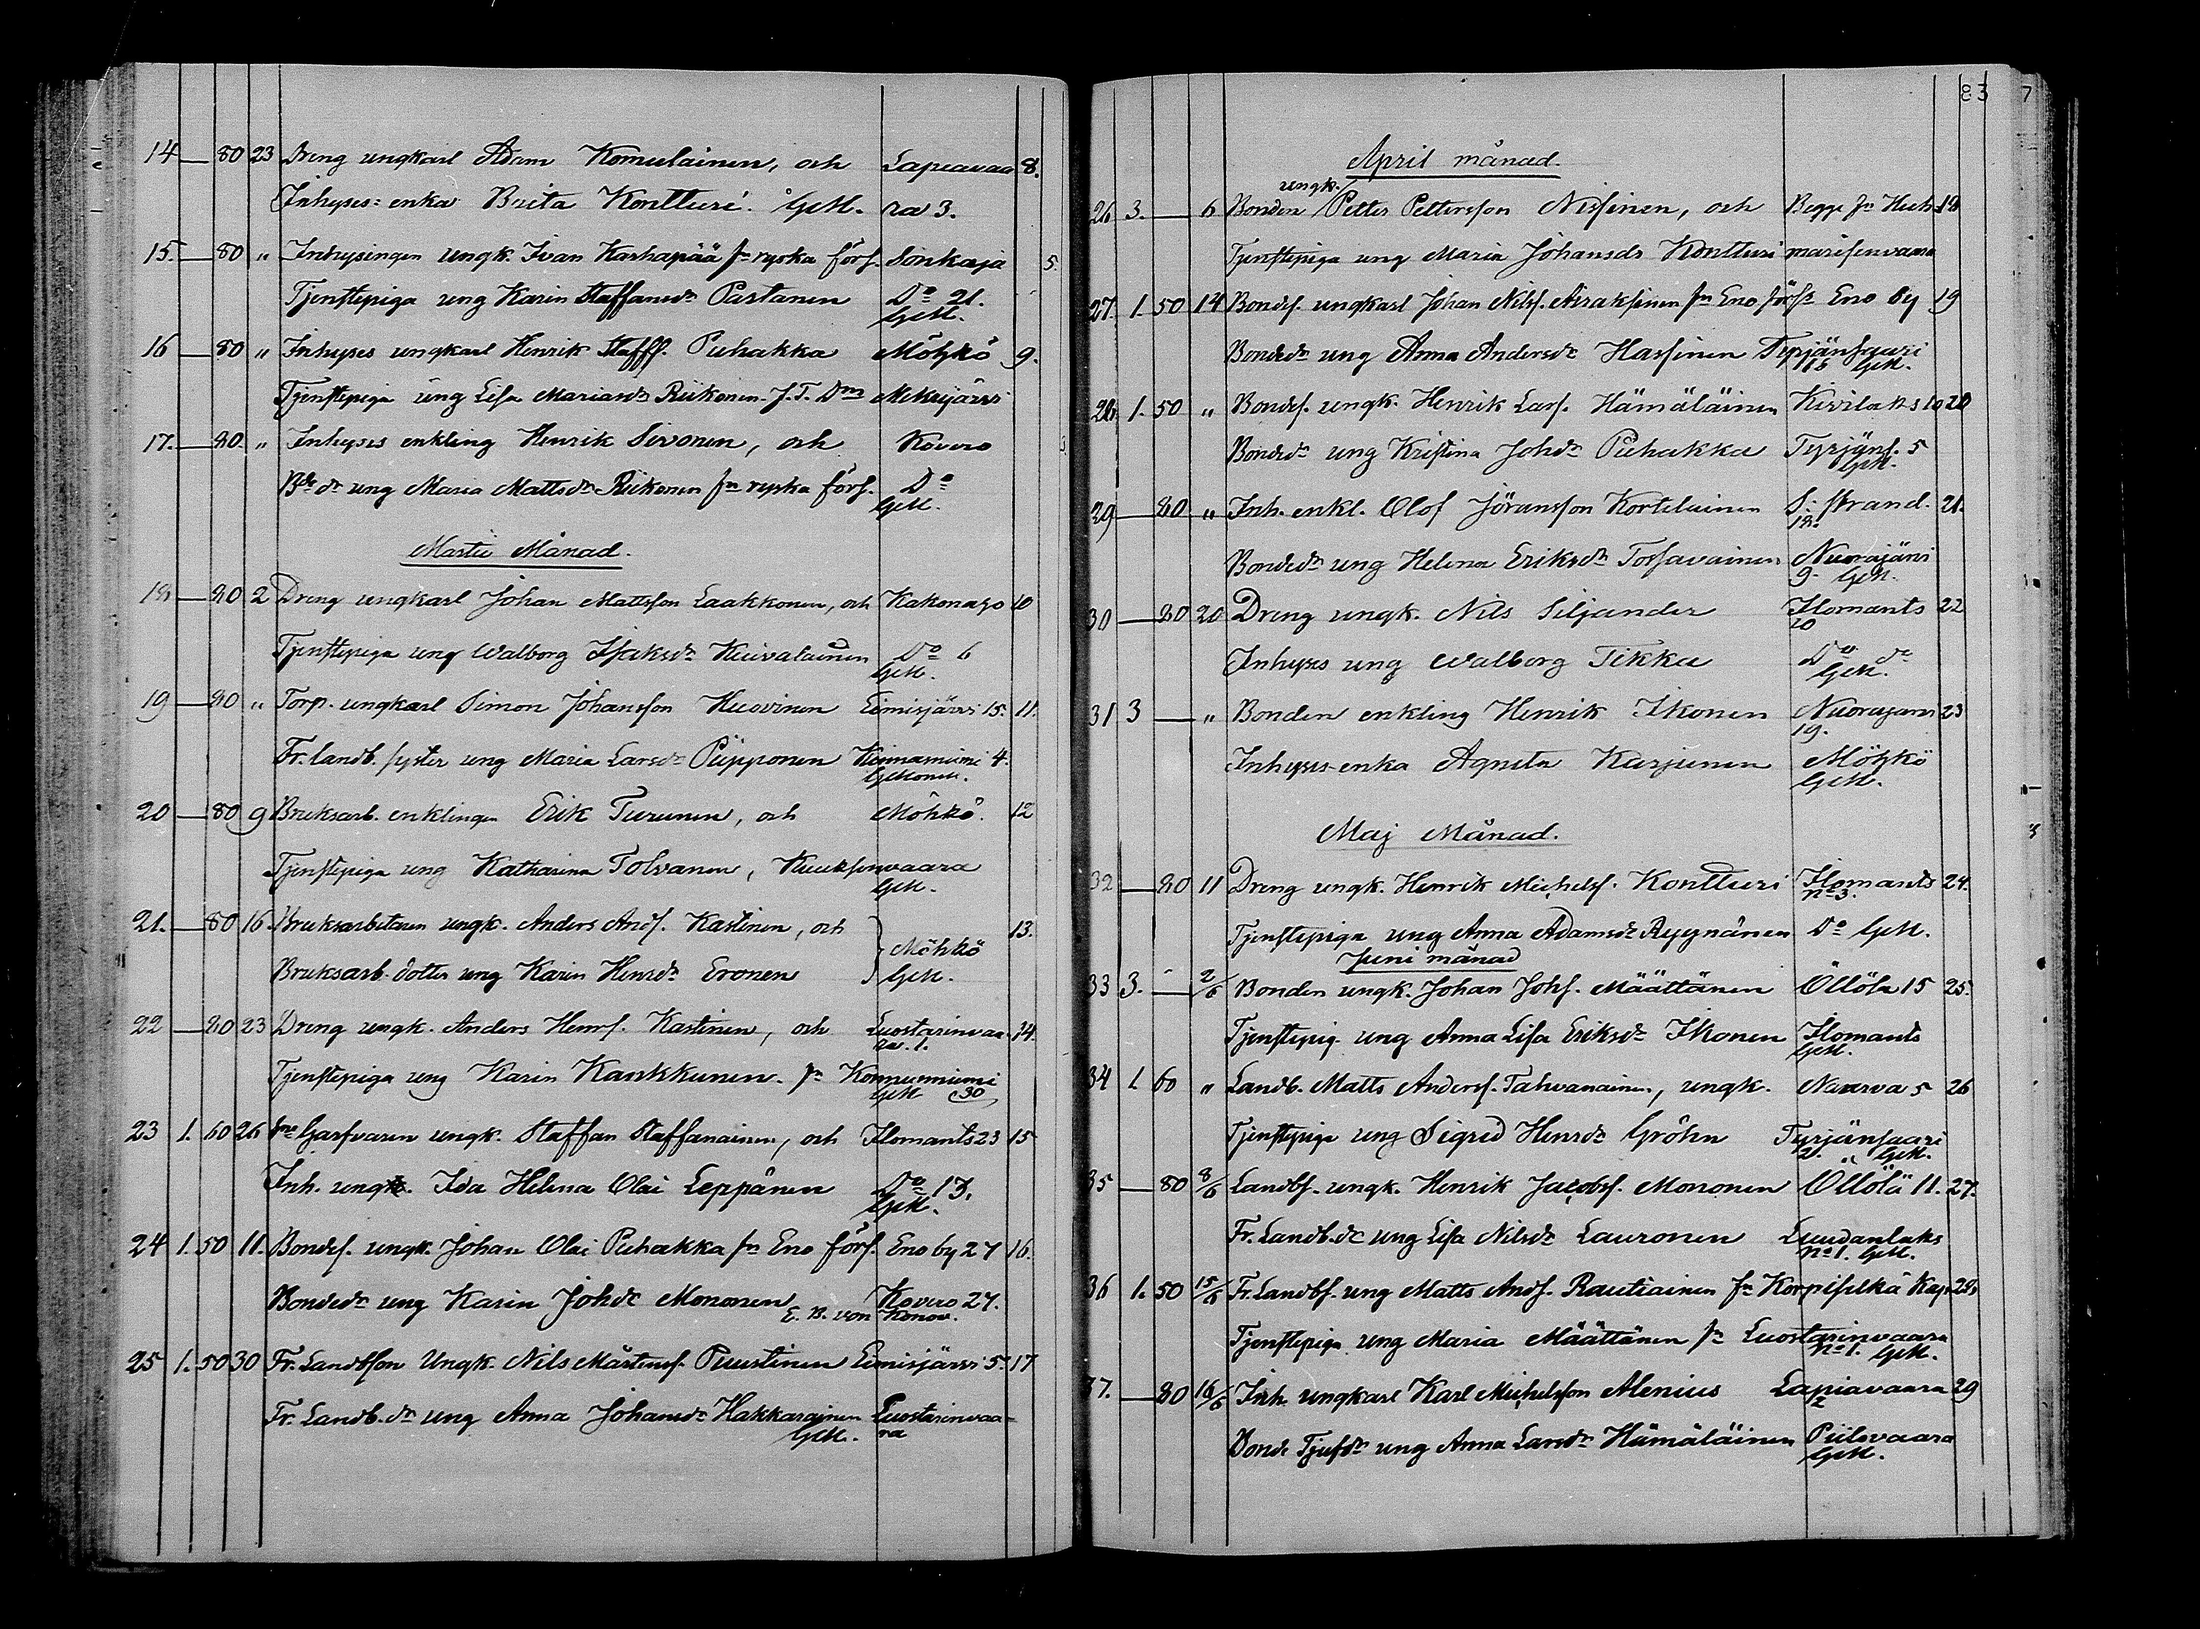 14 — 80 23 Dreng ungkarl Adam Komulainen, och Lapiavaa 8.
Inhyses=enka Brita Kontturi. GM. ra 3.
15. — 80 „ Inhysingen ungk. Ivan Karhapää fr ryska förs. Sonkaja 5.
Tjenstepiga ung Karin Staffansdr Partanen Do 21. GM.
16 — 80 „ Inhyses ungkarl Henrik Staff. Puhakka Möhkö 9.
Tjenstepiga ung Lisa Mariasdr Riikonen Mekrijärvi
17. — 80. „ Inhyses enkling Henrik Sivonen, och Kovero
dr ung Maria Mattsdr Riikonen fr ryska förs. Do GM.
Martii Månad.
18 — 80 2 Dreng ungkarl Johan Mattsson Laakkonen, och Kakonaho 10
Tjenstepiga ung Walborg Isaksdr Kuivalainen Do 6 GM.
19 — 80 „ Torp. ungkarl Simon Johansson Huovinen Eimisjärvi 15. 11.
Fr. landb. syster ung Maria Larsdr Piipponen Konnaniemi 4.
20 — 80 9 Bruksarb. enklingen Erik Turunen, och Möhkö. 12
Tjenstepiga ung Katharina Tolvanen, Kuuksenvaara GM.
21. — 80 16. Bruksarbetaren ungk. Anders Ands. Kastinen, och Möhkö 13.
Bruksarb. dotter ung Karin Henrsdr Eronen GM.
22 — 80 23 Dreng ungk. Anders Henrs. Kastinen, och Luostarinvaa- 14.
ra. 1.
Tjenstepiga ung Karin Kankkunen. fr Konnunniemi GM 30
23 1. 60 26 Garfvaren ungk. Staffan Staffanainen, och Ilomants 23 15
Inh. ungk. Ida Helena Olai Leppänen Do 13. GM.
24 1. 50 11. Bondes. ungk. Johan Olai Puhakka fr Eno förs. Eno by 27 16.
Bondedr ung Karin Johdr Mononen Kovero 27.
E. B. von Konow.
25 1. 50 30 Fr. Landbson Ungk. Nils Mårtens. Puustinen Eimisjärvi 5. 17
Fr. Landb. dr ung Anna Johansdr Hakkarainen Luostarinvaa-
GM. ra
83 7
April månad.
ungk.
26 3. — 6 Bonden Petter Pettersson Nissinen, och Begge fr Huh 18
Tjenstepiga ung Maria Johansdr Kontturi marisenvaara
27. 1. 50 14 Bondes. ungkarl Johan Nilss. Asraksinen fr Eno förs. Eno by 19
Bondedr ung Anna Andersdr Hassinen Tyrjänsaari
GM.
28. 1. 50 „ Bondes. ungk. Henrik Lars. Hämäläinen Kivilaks 10 20
Bondedr ung Kristina Johdr Puhakka Tyrjäns. 5 GM.
29 — 80 „ Inh. enkl. Olof Jöransson Kortelainen S. strand. 21.
18.
Bondedr ung Helena Eriksdr Torsavainen Nuorajärvi
9. GM.
30 — 80 20 Dreng ungk. Nils Siljander Ilomants 22
20
Inhyses ung Walborg Tikka Do do GM.
31 3 — „ Bonden enkling Henrik Ikonen Nuorajärvi 23
19.
Inhyses-enka Agneta Karjunen Möhkö GM.
Maj Månad.
32 — 80 11 Dreng ungk. Henrik Michels. Kontturi Ilomants 24.
No 3.
Tjenstepiga ung Anna Adamsdr Ryynänen Do GM.
Juni månad
33 3. — 2/6 Bonden ungk. Johan Johs. Määttänen Öllölä 15 25.
Tjenstepig. ung Anna Lisa Eriksdr Ikonen Ilomants GM.
34 1. 60 „ Landb. Matts Anders. Tahvanainen, ungk. Naarva 5 26
Tjenstepiga ung Sigrid Henrsdr Gröhn Tyrjänsaari
21. GM.
35 — 80 8/6 Landbs. ungk. Henrik Jacobs. Mononen Öllölä 11. 27.
Fr. Landb. dr ung Lisa Nilsdr Lauronen Luudanlaks
No 1. GM.
36 1. 50 15/6 Fr. Landbs. ung Matts Ands. Rautiainen fr Korpiselkä Kap. 28
Tjenstepiga ung Maria Määttänen fr Luostarinvaara
No 1. GM.
37. — 80 16/6 Inh. ungkarl Karl Michelsson Alenius Lapiavaara 29
2
Bonde ung Anna Larsdr Hämäläinen Piilovaara GM.